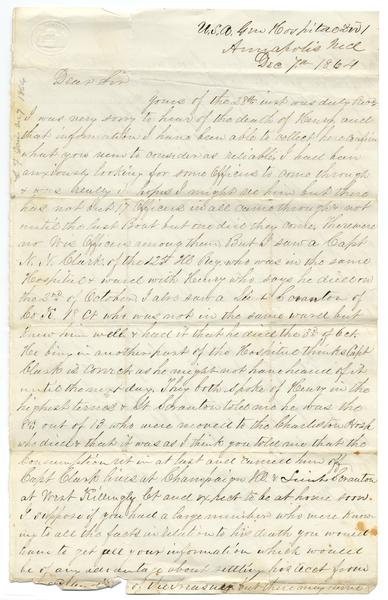 U.S.A. Gen Hospital Div 1
Annapolis Md
Dec 7th 1864
Dear Sir
Yours of the 28th inst was duly Recd
I was very sorry to hear of the death of Henry, and
that information I have been able to collect here confirms
what you seem to consider as reliable. I had been
anxiously looking for some Officers to come through
& was really in hopes I might see him but there
has not but 17 Officers in all came through & not
until the last Boat but one did they come. There were
no Wis Officers among them But I saw a Capt
N. Clark of the Ill Reg. who was in the same
Hospital & ward with Henry who says he died on
the 3rd of October. I also saw a Lieut Scranton of
Co K Ct who was not in the same ward but
knew him well & had it that he died the 3d of Oct
He being in another part of the Hospital thinks Capt
Clark is correct as he might not have heard of it
until the next day. They both spoke of Henry in the
highest terms & Lt Scranton told me he was the
8th out of 13 who were moved to the Charleston Hosp
who died & that it was as I think you told me that the
Consumption set in at last and carried him off
Capt Clark lives at Champaign Ill & Lieut Scranton
at West Killingly Ct and expects to be at home soon.
I suppose if you had a large number who were know-
ing to all the facts in relation to his death you would
want to get all your information which would
be of any advantage about settling his acct from
of the Treasury but there may